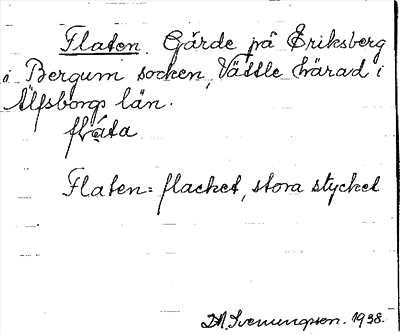 Flaten. Gärde på Eriksberg
i Bergum socken, Vättle härad i
Älfsborgs län.
flata
Flaten = flacket, stora stycket
Svenungsson. 1938.